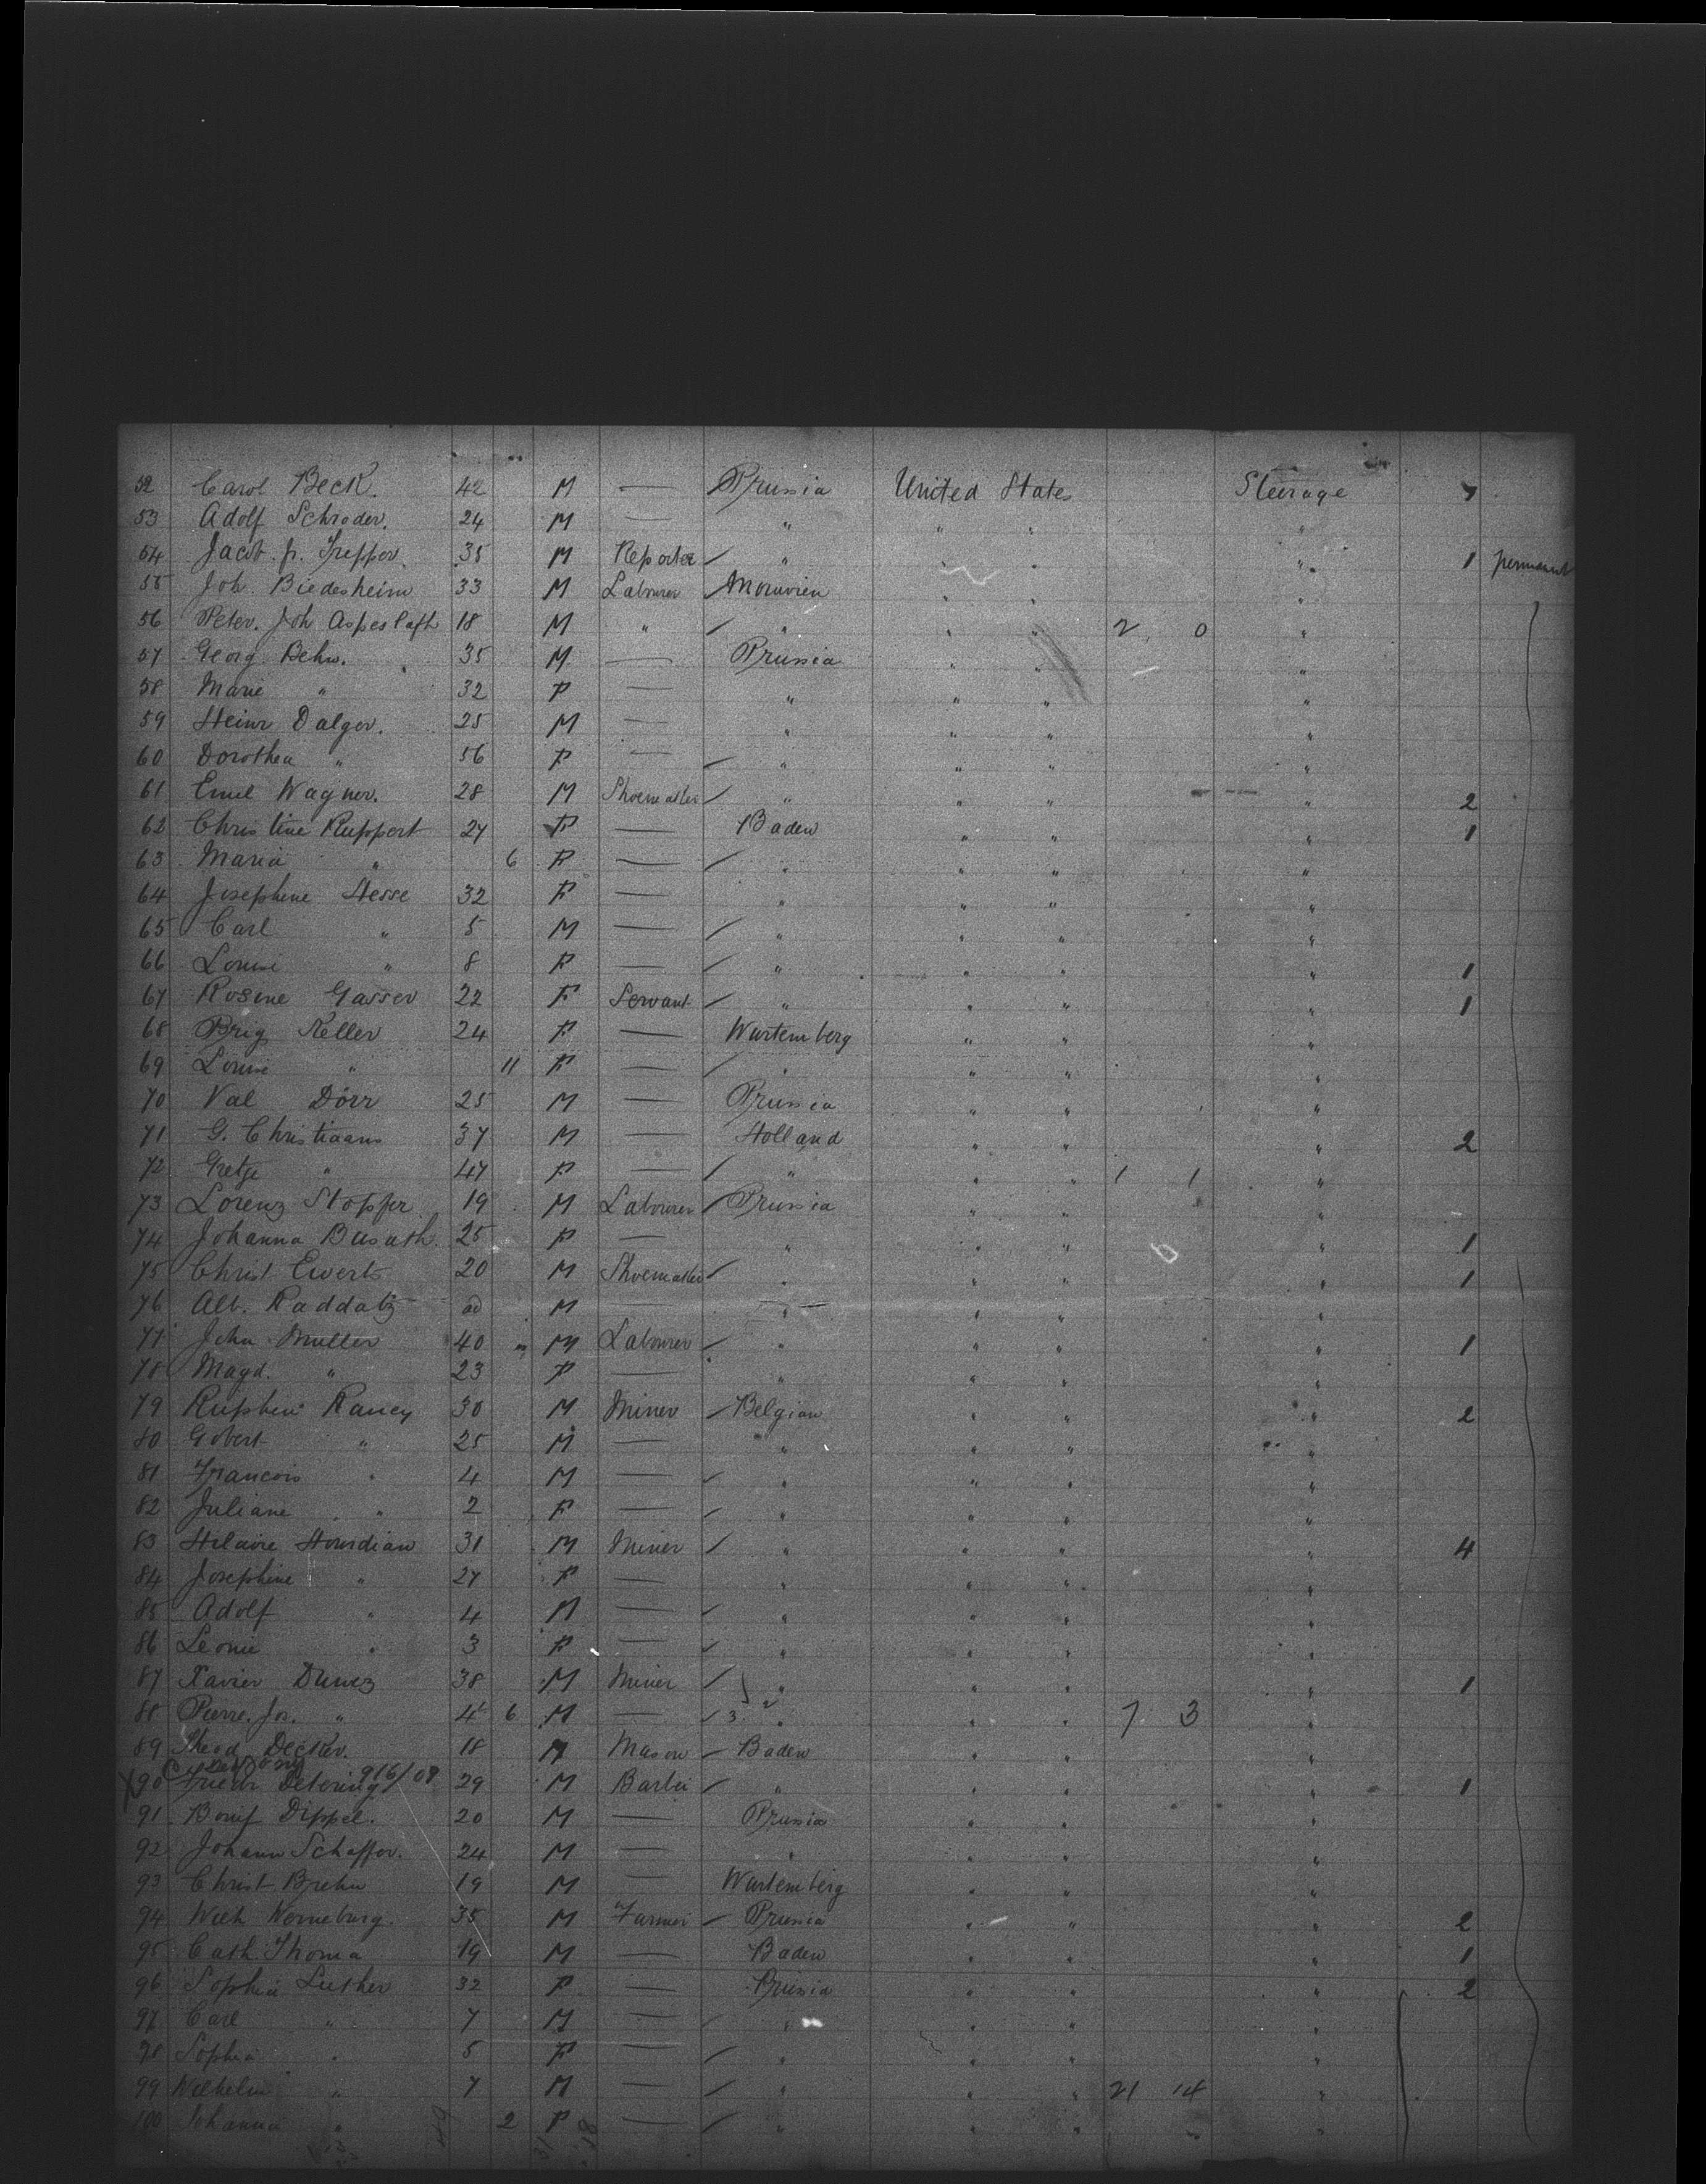 52 Carol Beck. 42 M — Prussia United States Steerage
53 Adolf Schroder. 24 M — " " " "
54 Jacob. p. Treppov. 35 M Reporter " " " " 1 permanent
55 Joh. Biedesheim 33 M Labourer " " "
56 Peter. Joh 18 M " " " " 2 0 "
57 Georg Behw. 35 M — Prussia " " "
58 Marie " 32 F — " " " "
59 Heinr Dalger. 25 M — " " " "
60 Dorothea " 56 F — " " " "
61 Emil Wagner. 28 M Shoemaker " " " " 2
62 Christine Ruppert 27 F — Baden " " " 1
63 Maria " 6 F — " " " "
64 Josephine Hesse 32 F — " " " "
65 Carl " 5 M — " " " "
66 Louise " 8 F — " " " " 1
67 Rosine Gasser 22 F Servant " " " " 1
68 Brig Keller 24 F — Wurtemberg " " "
69 Louise " 11 F — " " " "
70 Val Dörr 25 M — Prussia " " "
71 G. Christiaans 37 M — Holland " " " 2
72 Gretje " 47 F — " " " 1 1 "
73 Lorenz Stopfer 19 M Labourer Prussia " " "
74 Johanna Busath. 25 F — " " " " 1
75 Christ Ewert 20 M Shoemaker " " " " 1
76 Alb. Raddatz M — " " " "
77 John Muller 40 M Labourer " " " " 1
78 Magd. " 23 F — " " " "
79 Rancy 30 M Miner Belgian " " " 2
80 Gobert " 25 M — " " " "
81 Francois " 4 M — " " " "
82 Juliane " 2 F — " " " "
83 Hilaire Hourdiau 31 M Miner " " " " 4
84 Josephine " 27 F — " " " "
85 Adolf " 4 M — " " " "
86 Leonie " 3 F — " " " "
87 Xavier 38 M Miner " " " " 1
88 Pierre. Jos. " 4 6 M — 3. " " " 7 3 "
89 Decker. 18 M Mason Baden " " "
916/08
X 90 Friedr Detering 29 M Barber " " " " 1
91 Bonif Dippel. 20 M — Prussia " " "
92 Johann Schaffer. 24 M — " " " "
93 Christ Brehm 19 M — Wurtemberg " " "
94 Wilh Werneburg. 35 M Farmer Prussia " " " 2
95 Cath Thoma 19 M — Baden " " " 1
96 Sophia Luther 32 F — Prussia " " " 2
97 Carl " 7 M — " " " "
98 Sophia " 5 F — " " " "
99 Wilhelm " 7 M — " " " 21 14 "
100 Johanna " 2 F — " " " "